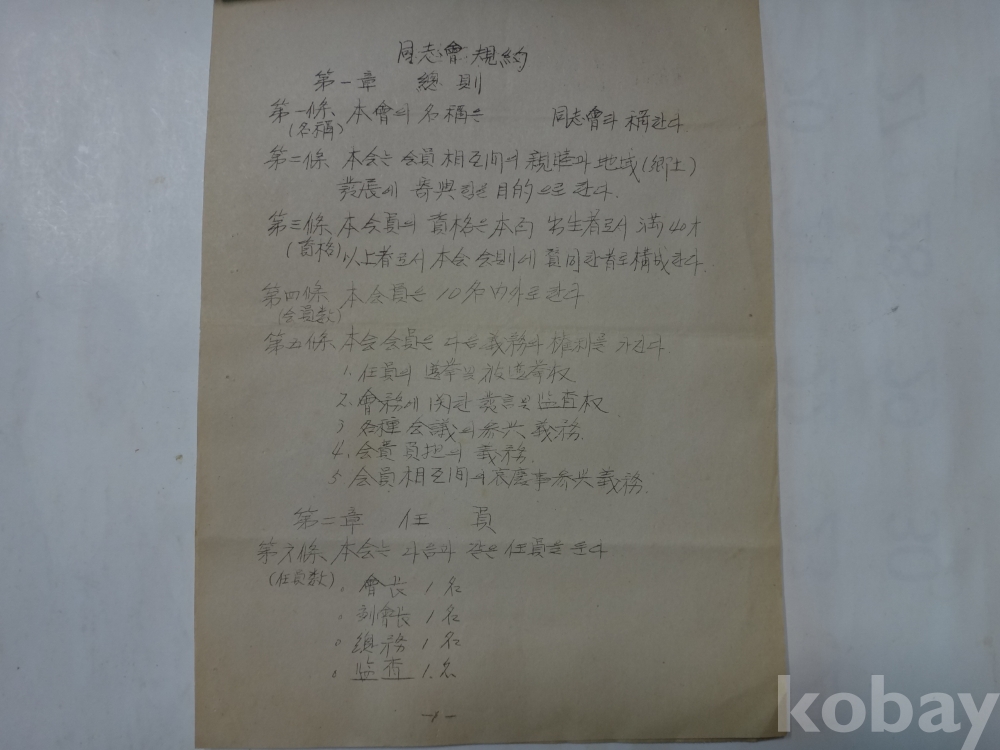 同志會 規約
第一章 總則
第一條 本會의 名稱은 同志會라 稱한다
(名稱)
第二條 本会는 会員 相互間의 親睦과 地域(鄕土)
發展에 寄與함을 目的으로 한다.
第三條 本会員의 資格은 本面 出生者로서 滿40才
(資格) 以上者로서 本会 会則에 贊同한 者로 構成한다.
第四條 本会員은 10名 内外로 한다
(会員数)
第五條 本会 会員은 다음 義務와 權利를 가진다.
1. 任員의 選挙 및 被選挙权
2. 會務에 関한 發言 및 监査权
3 各種 会議의 参与 義務.
4. 会費 負担의 義務.
5 会員 相互间의 哀慶事 参与 義務.
第二章 任員
第六條 本会는 다음과 같은 任員을 둔다
(任員数)
。會長 1名
。副會長 1名
。總務 1名
。监査 1.名
-1-
kobay